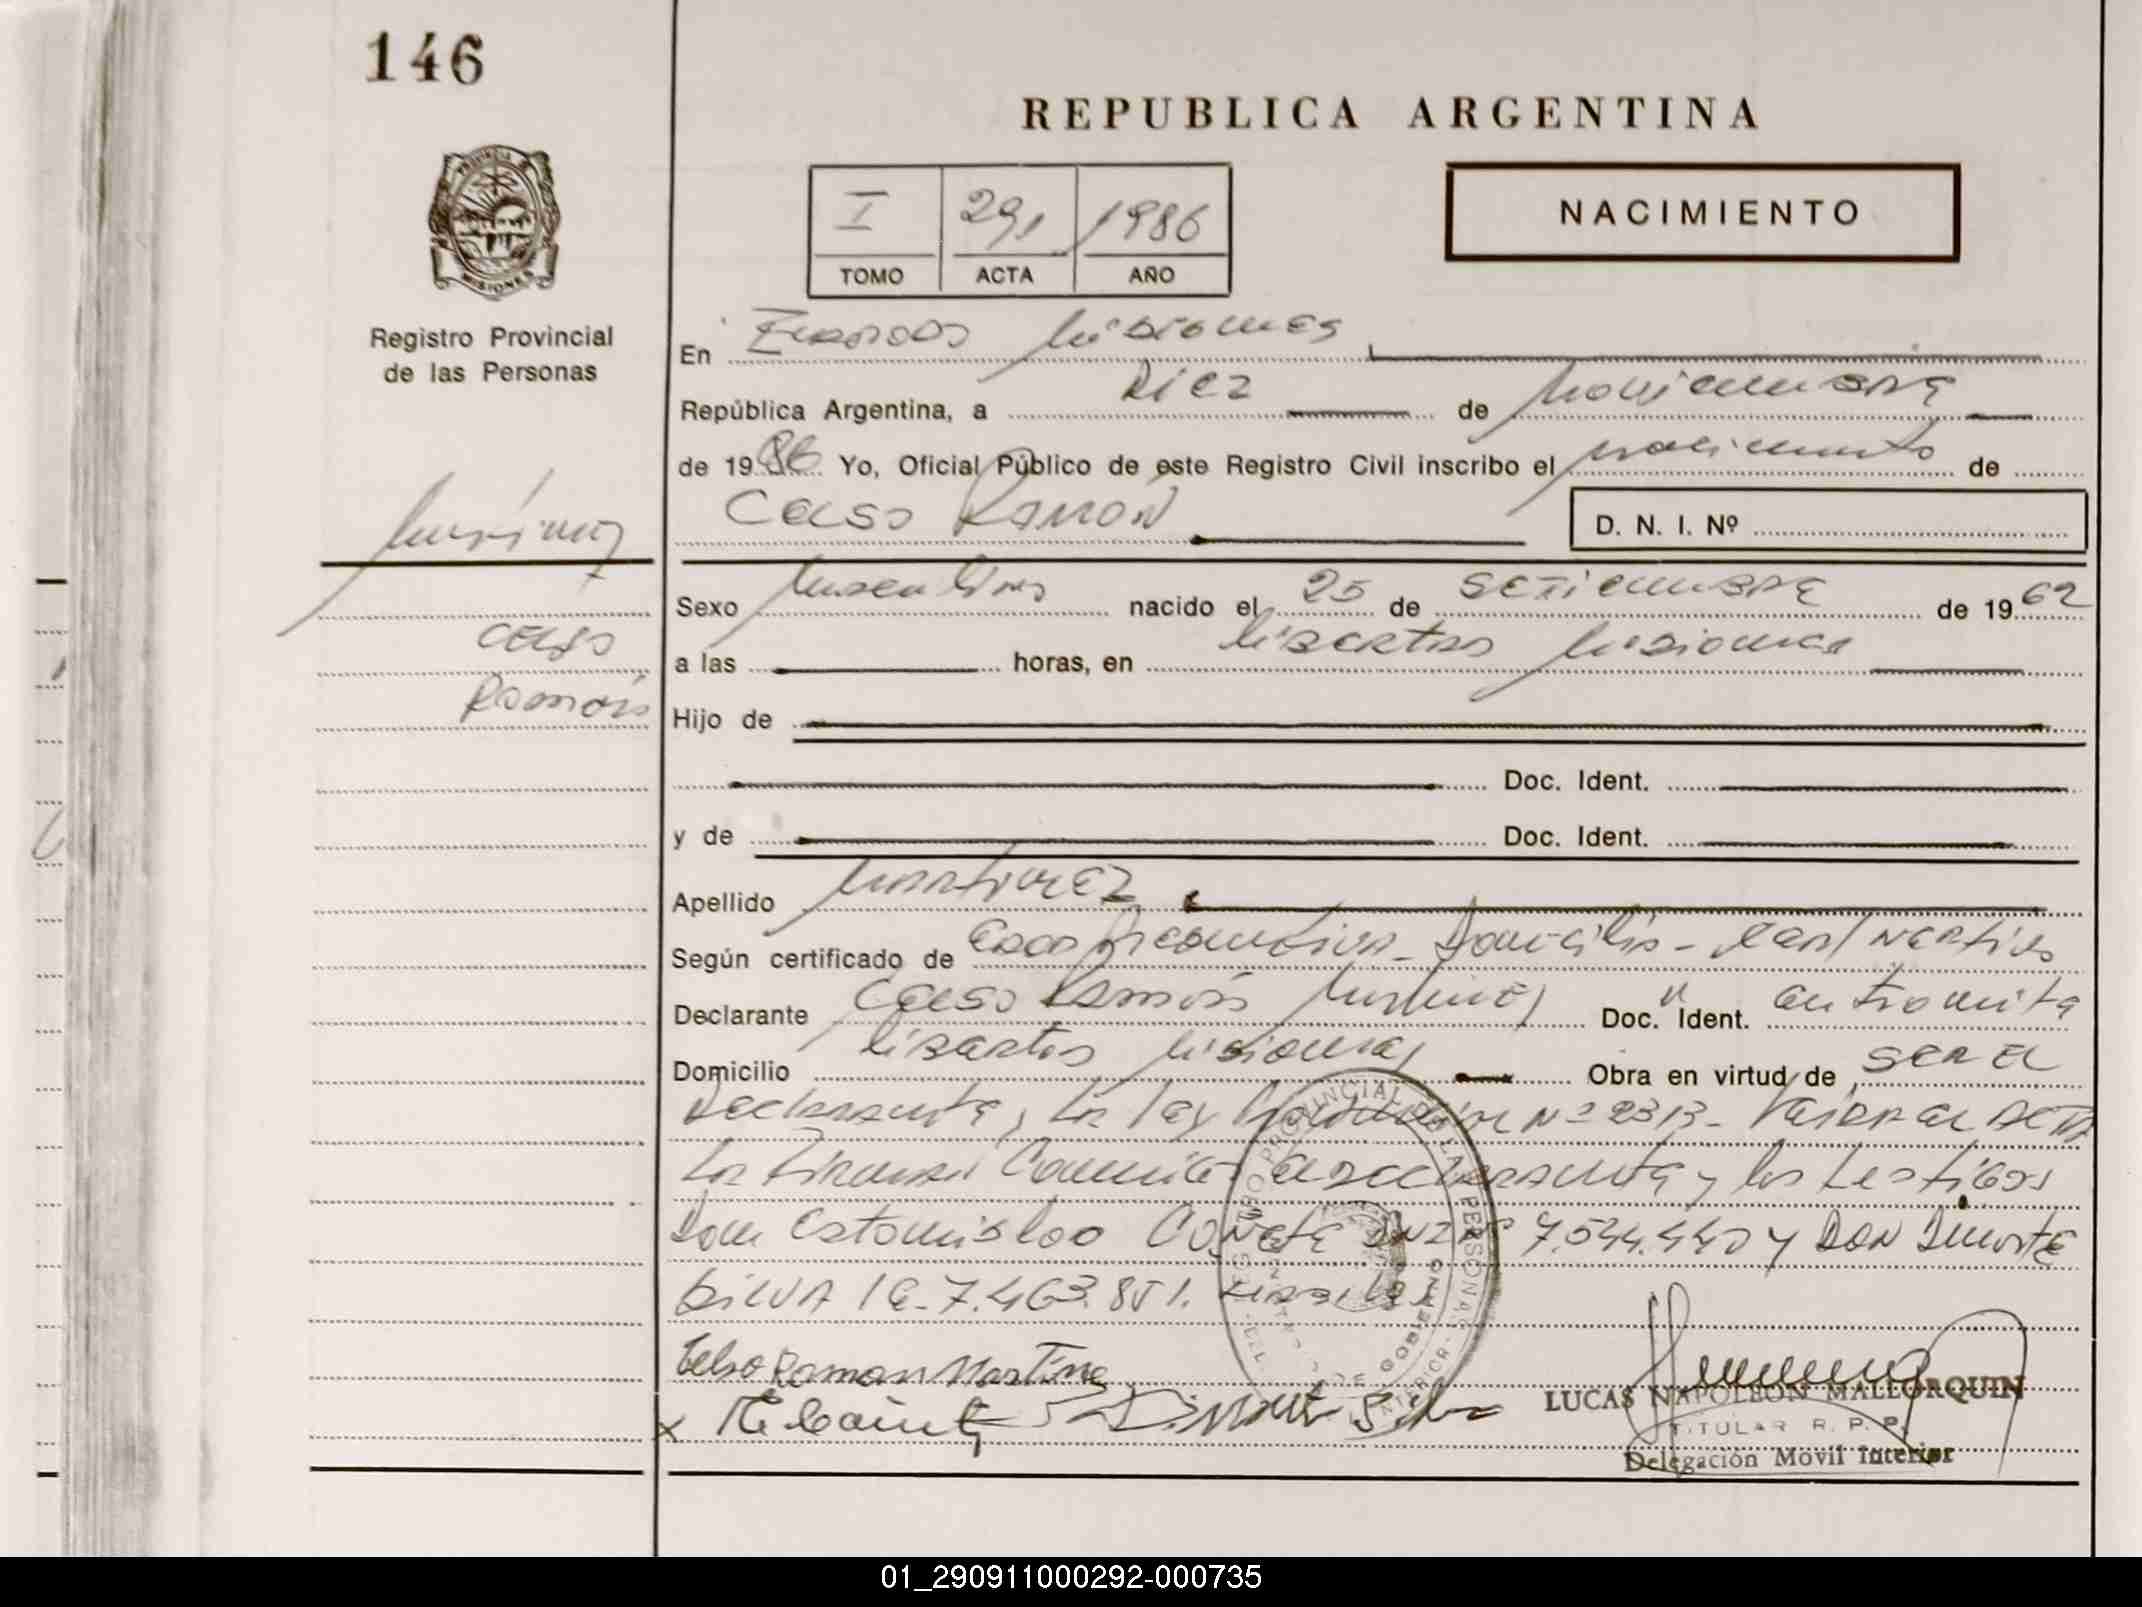 146
REPUBLICA ARGENTINA
PROVINCIA DE
MISIONES
Registro Provincial
de las Personas
I 291 1986
TOMO ACTA AÑO
NACIMIENTO
En Misiones
República Argentina, a Diez de Noviembre
de 1986 Yo, Oficial Público de este Registro Civil inscribo el nacimiento de
Celso Ramón
D. N. I. Nº
Martinez
Celso
Ramón
Sexo Masculino nacido el 25 de Setiembre de 1962
a las horas, en Libertad Misiones
Hijo de
Doc. Ident.
y de Doc. Ident.
Apellido Martinez
Según certificado de Domicilio
Declarante Celso Ramón Martinez Doc. Ident. en tramite
Domicilio Libertad Misiones Obra en virtud de ser el
Declarante, la Ley Nº 2313
La Firman el declarante y los testigos
Don Estanislao 7.544.440 y Don
Silva 7.463.851.
Celso Ramon Martine
x Silva
LUCAS NAPOLEON MALLORQUIN
TITULAR R. P. P.
Delegación Movil Interior
01_290911000292-000735